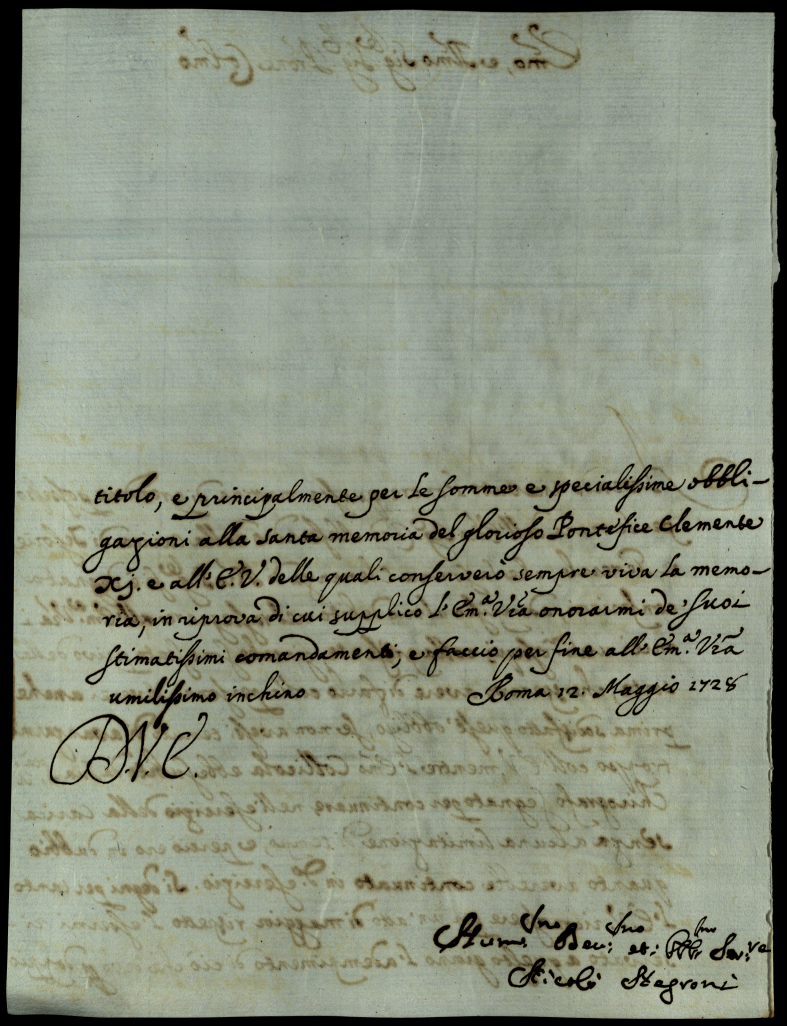 titolo, e principalmente per le somme e specialissime obbli-
gazioni alla santa memoria del glorioso Pontefice Clemente
XJ. e all'E.V. delle quali conserverò sempre viva la memo-
ria, in riprova di cui supplico l'Em.ª Vrã onorarmi de' suoi
stimatissimi comandamenti; e faccio per fine all'Em.ª Vrã
umilissimo inchino Roma 12. Maggio 1728
D.V.E.
Hum.mo Dev.mo et Obb.mo Ser.re
Nicolò Negroni